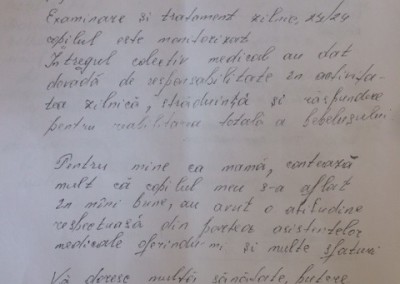 Examinare si tratament zilnic, 24/24
copilul este monitorizat
Întregul colectiv medical au dat
dovadă de responsabilitate în activita-
tea zilnică, străduință și răspundere
pentru reabilitarea totală a bebelușului.
Pentru mine ca mamă, contează
mult că copilul meu s-a aflat
în mîni bune, au avut o atitudine
respectuasă din partea asistentelor
medicale oferindu-mi și multe sfaturi
Vă doresc multă sănătate, putere